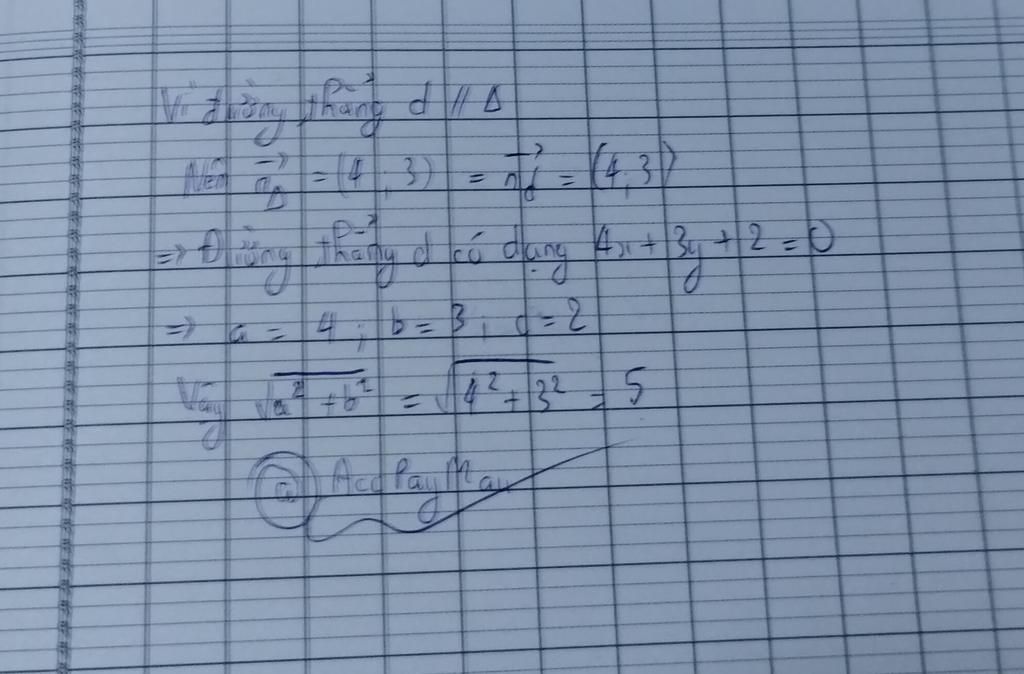 Vì đường thẳng d // Δ
Nên n⃗_Δ = (4; 3) = n⃗_d = (4; 3)
=> Đường thẳng d có dạng 4x + 3y + 2 = 0
=> a = 4; b = 3; c = 2
Vậy √(a² + b²) = √(4² + 3²) = 5
@ Acc Pay Man